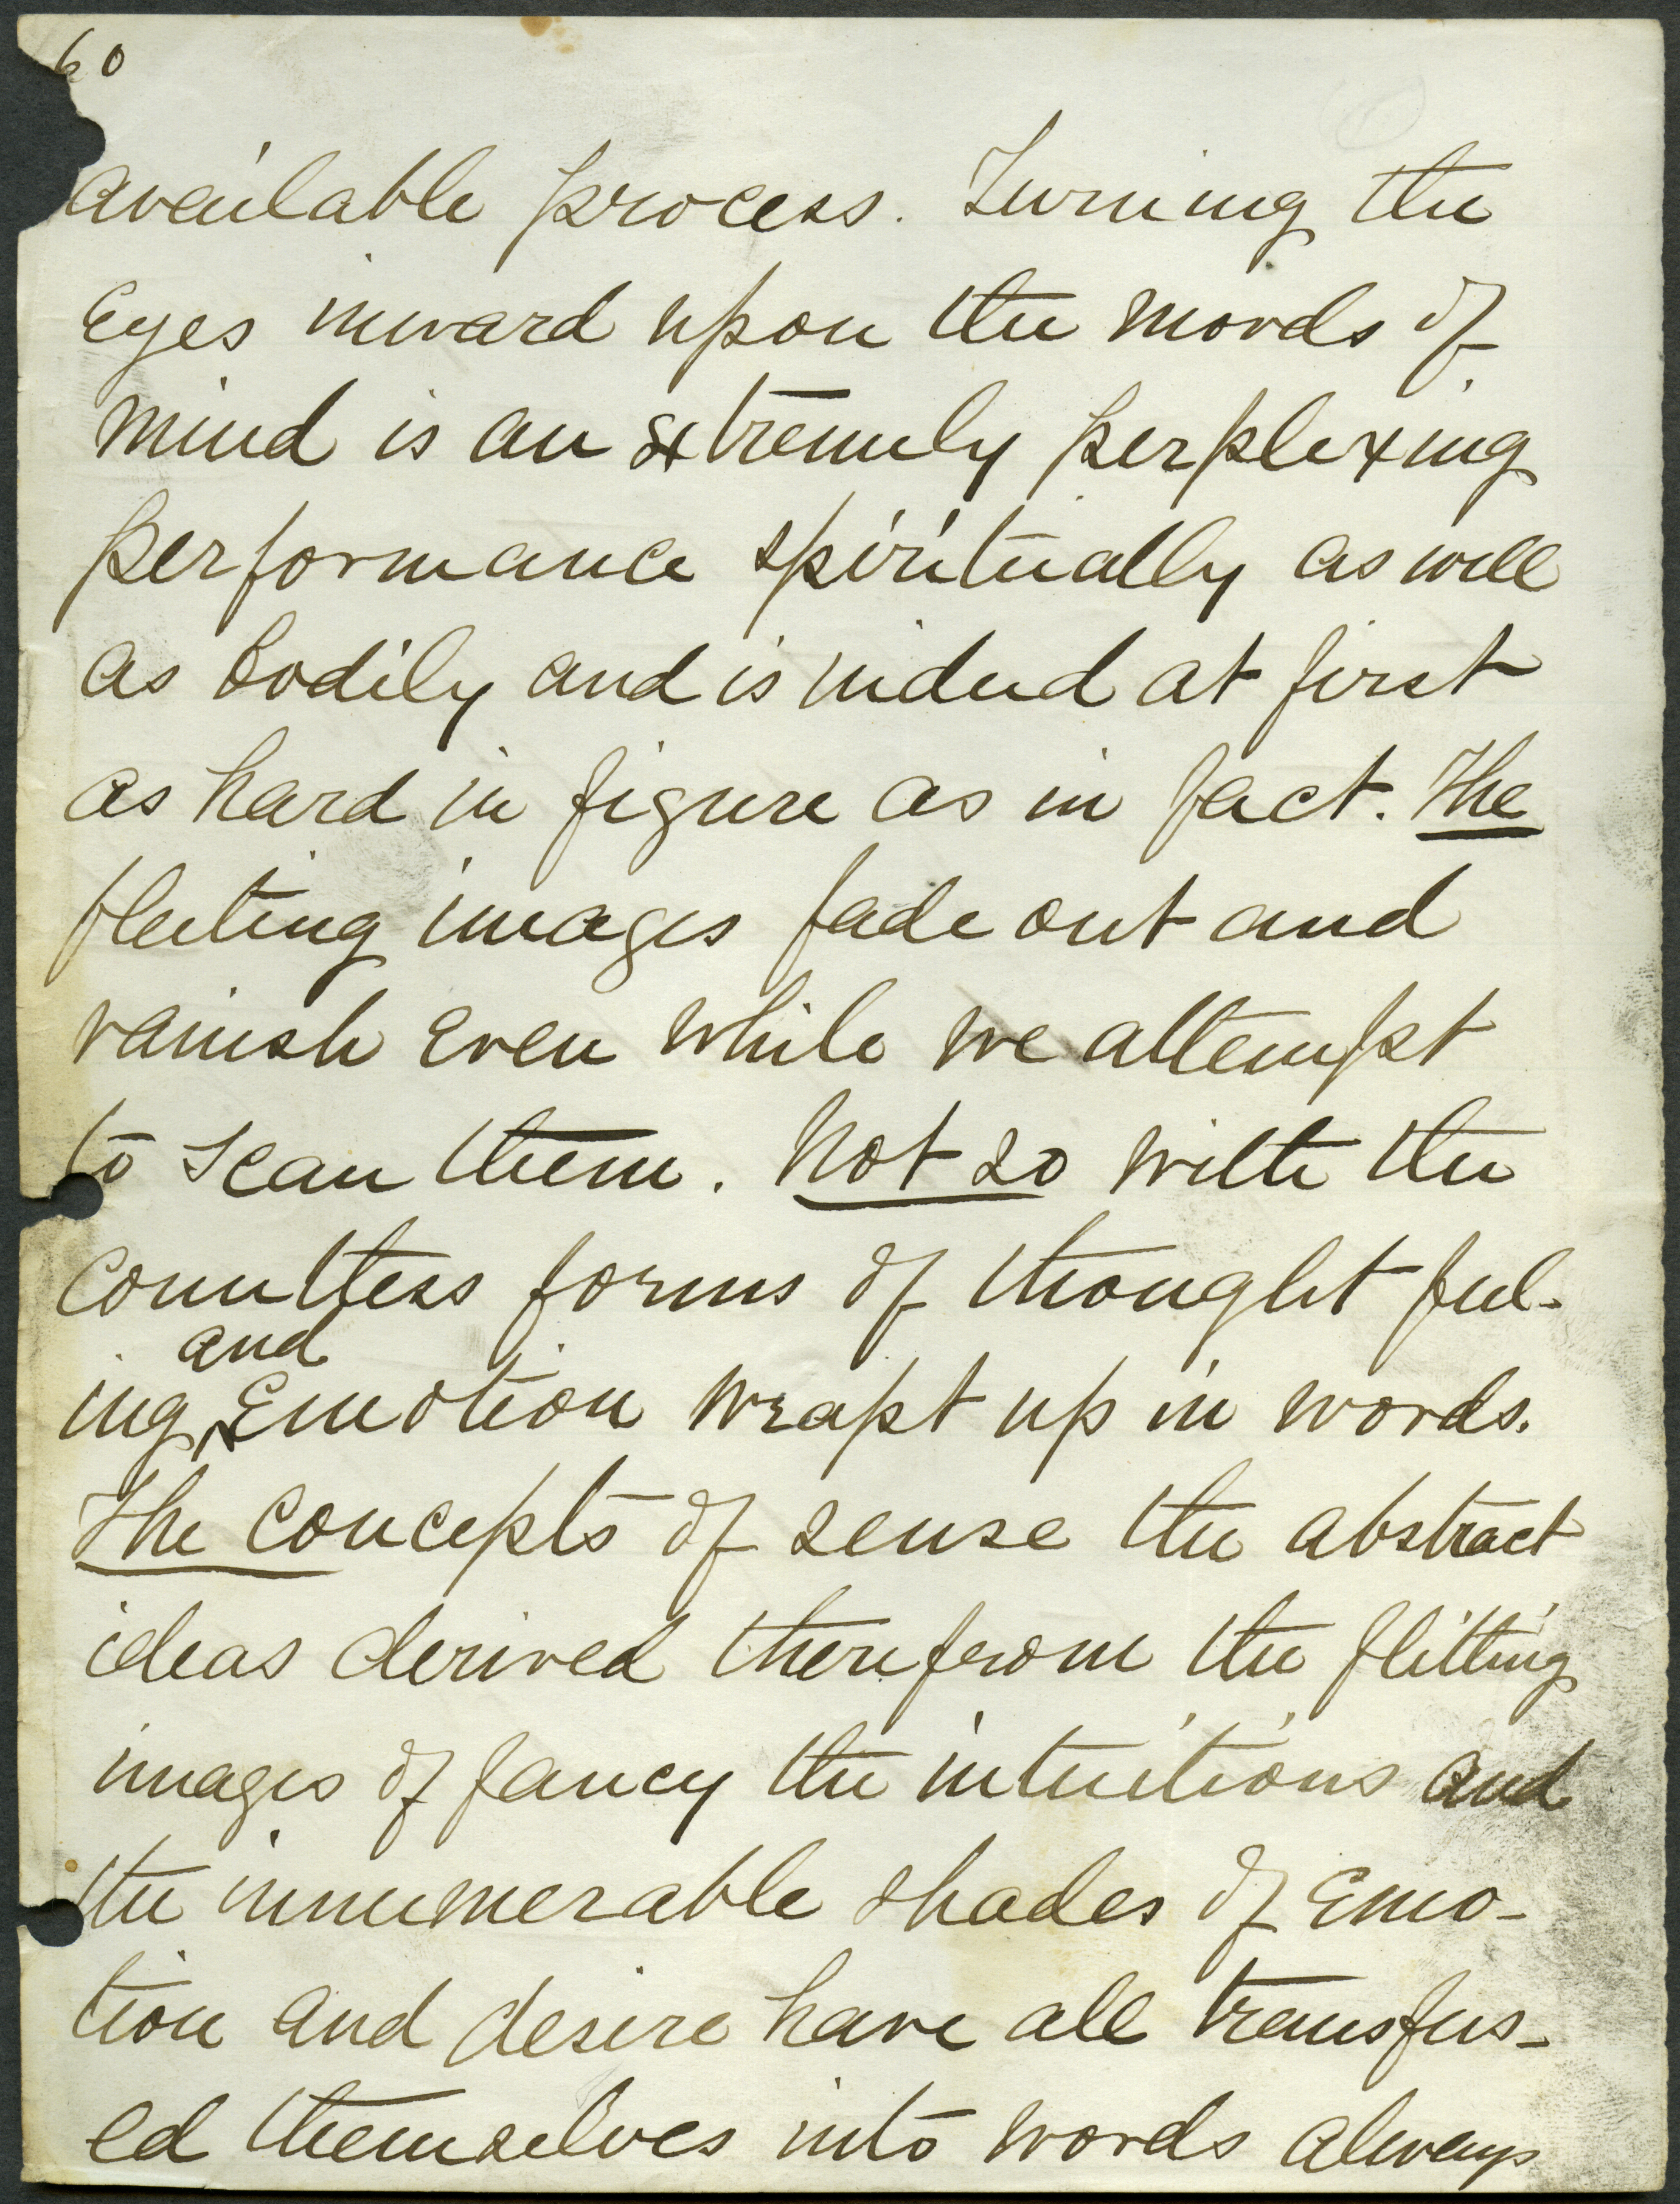 60
available process. Turning the
eyes inward upon the moods of
mind is an extremely perplexing
performance spiritually as well
as bodily and is indeed at first
as hard in figure as in fact. The
fleeting images fade out and
vanish even while we attempt
to scan them. Not so with the
countless forms of thought feel-
and
ing, emotion wrapt up in words.
The concepts of sense the abstract
ideas derived therefrom the flitting
images of fancy the intuitions and
the innumerable shades of emo-
tion and desire have all transfus-
ed themselves into words always